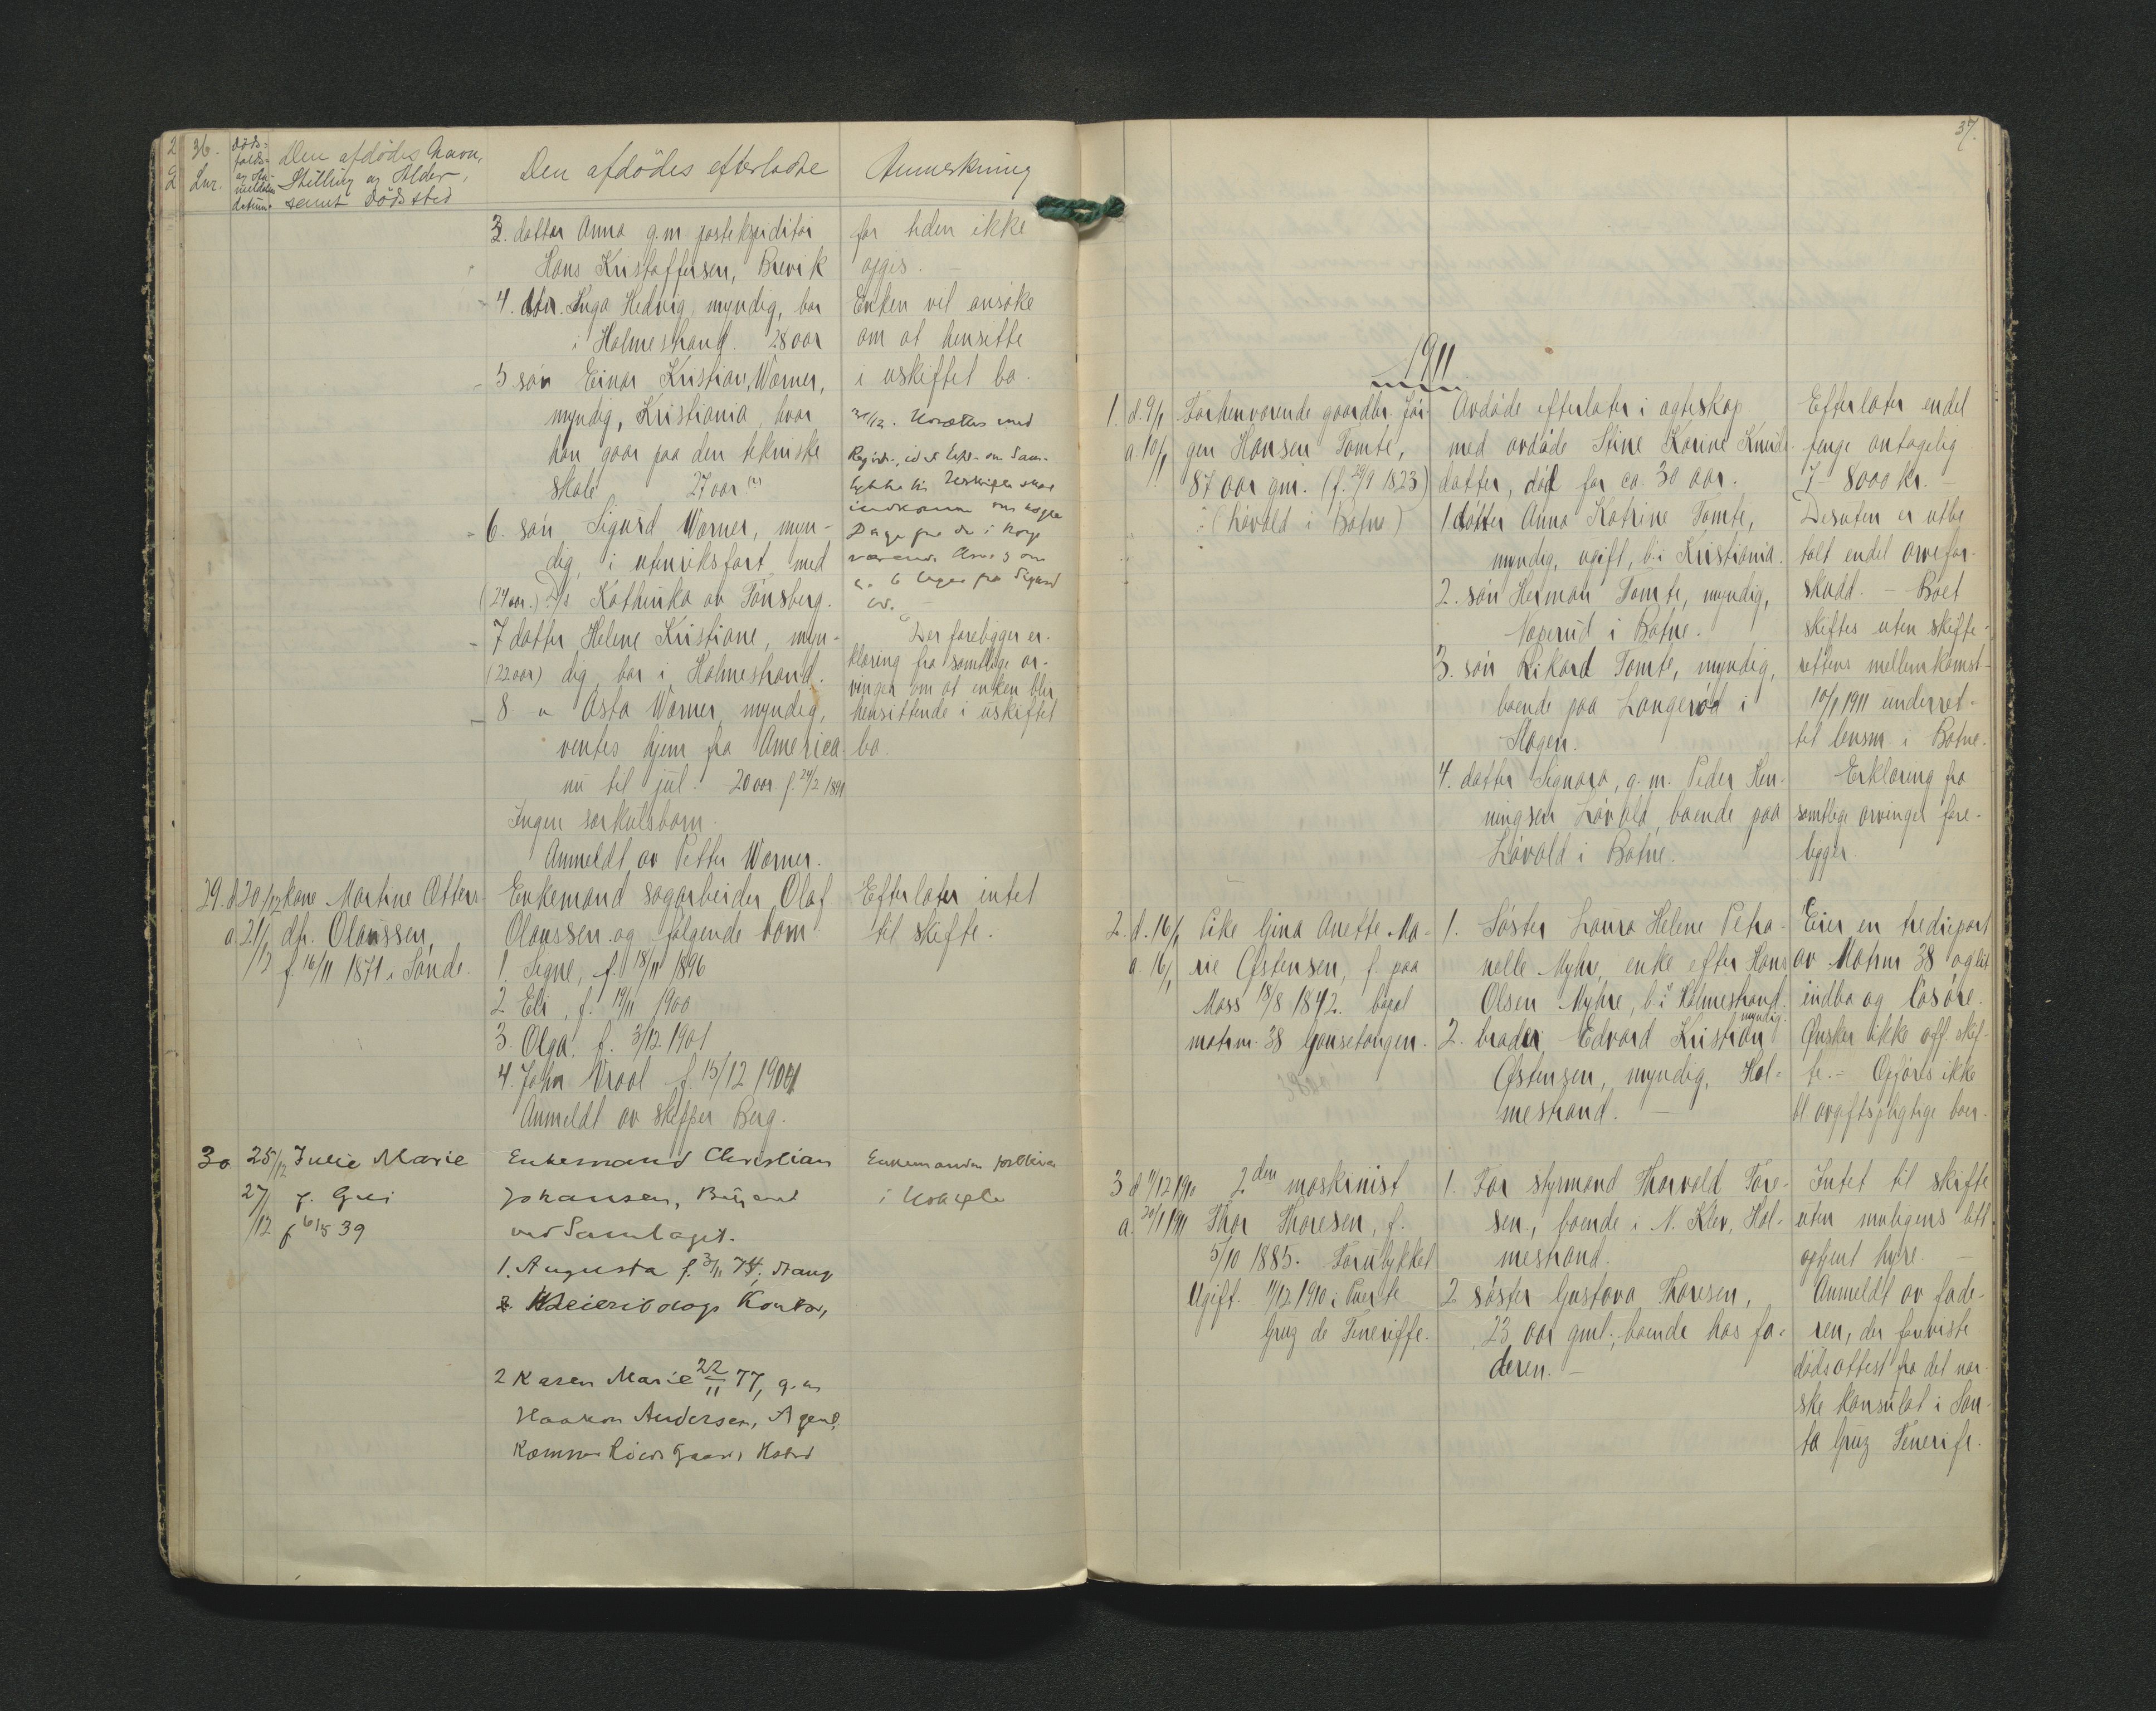 36.
Lnr.
Døds-
falds-
og An-
meldelses
datum.
Den afdödes Navn,
Stilling og Alder,
samt Dödssted
Den afdödes efterladte
Anmerkning
3. datter Anna g.m. postekspeditør
Hans Kristoffersen, Brevik
4. dtr. Inga Hedvig, myndig, bor
i Holmestrand. 28 aar
5 søn Einar Kristian Wærner,
myndig, Kristiania hvor
han gaar paa den tekniske
skole 27 aar
6. søn Sigurd Wærner, myn-
dig, i utenriksfart med
(24 aar.) D/s Kathinka av Tønsberg.
7 datter Helene Kristiane, myn-
(22 aar) dig, bor i Holmestrand.
8 " Asta Wærner, myndig,
ventes hjem fra America
nu til jul. 20 aar f. 24/2 1891
Ingen særkulsbarn.
Anmeldt av Petter Wærner.
for tiden ikke
opgis.
Enken vil ansøke
om at hensitte
i uskiftet bo.
Der foreligger er-
klæring fra samtlige ar-
vinger om at enken blir
hensittende i uskiftet
bo.
29. d 20/12 Kone Martine
a. 21/12 dtr. Olaussen,
f 16/11 1871 i Sande.
Enkemand sagarbeider Olaf
Olaussen og følgende barn
1. Signe, f. 18/11 1896
2 Eli, f. 19/11 1900
3. Olga, f. 3/12 1901
4. John Vraal f. 15/12 1904
Anmeldt av skipper Berg.
Efterlater intet
til skifte.
30 25/12 Julie Marie
27/12 f.
f 6/5 39
Enkemand Christian
Johansen,
ved Samlaget.
1. Augusta f. 3/11 74,
Meieribolags Kontor,
2 Karen Marie 22/11 77, g. m
Haakon Andersen, Agent,
Enkemanden forbliver
i Uskifte
37.
1911
1. d. 9/1 Forhenværende gaardbr. Jør-
a. 10/1 gen Hansen Tømte,
87 aar gm. (f. 29/9 1823)
(Løvald i Botne)
Avdøde efterlater i egteskap
med avdøde Stine Karine Knuds-
datter, død for ca. 30 aar.
1 datter Anna Katrine Tømte,
myndig, ugift, b. i Kristiania.
2. søn Herman Tømte, myndig,
i Botne.
3. søn Rikard Tømte, myndig,
boende paa Langerød i
Slagen.
4. datter Signora, g. m. Peder Hen-
ningsen Løvald, boende paa
Løvald i Botne.
Efterlater endel
penge antagelig
7 - 8000 kr. -
Desuten er utbe
talt endel arvefor-
skudd. - Boet
skiftes uten skifte-
rettens mellemkomst
10/1 1911 underret-
tet lensm. i Botne.
Erklæring fra
samtlige arvinger fore-
ligger.
2. d. 16/1 Pike Gina Anette Ma-
a. 16/1 rie Østensen, f. paa
Moss 18/8 1842. bopæl
matrnr. 38 Gausetangen.
1. Søster Laura Helene Petro-
nelle Myhre, enke efter Hans
Olsen Myhre, b. i Holmestrand. myndig
2. broder Edvard Kristian
Østensen, myndig, Hol-
mestrand.
Eier en trediepart
av Matrnr 38 og litt
indbo og løsøre.
Ønsker ikke off. skif-
te. - Opføres ikke
bl. avgiftspligtige boer.
3 d 11/12 1910 2den maskinist
a. 20/1 1911 Thor Thoresen, f.
5/10 1885. Forulykket
Ugift. 11/12 1910 i
Cruz de Teneriffe.
1. Far styrmand Thorvald Tore-
sen, boende i N. Klev, Hol-
mestrand.
2 søster Gustava Thoresen,
23 aar gml., boende hos fa-
deren. -
Intet til skifte
uten muligens litt
optjent hyre. -
Anmeldt av fade-
ren, der foreviste
dødsattest fra det nor-
ske konsulat i San-
ta Cruz Tenerife.